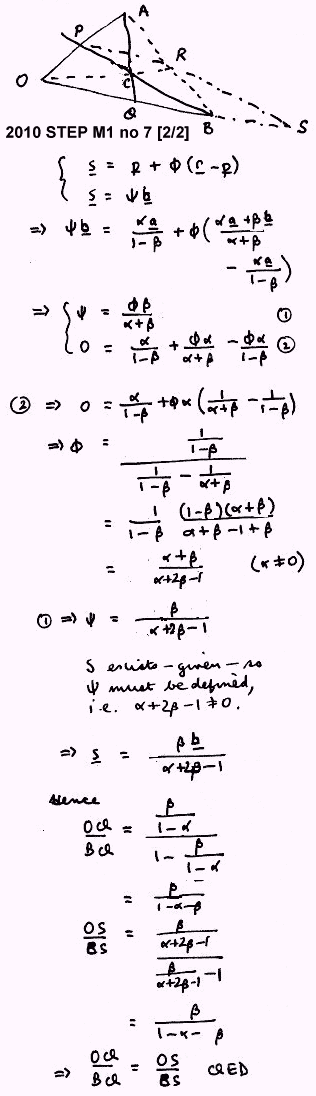 A
P
R
O
C
Q
B
S
2010 STEP M1 no 7 [2/2]
{ s = p + φ (r - p)
s = ψ b
=> ψ b = αa/(1-β) + φ( (αa + βb)/(α+β)
- αa/(1-β) )
=> { ψ = φβ/(α+β) ①
0 = α/(1-β) + φα/(α+β) - φα/(1-β) ②
② => 0 = α/(1-β) + φα ( 1/(α+β) - 1/(1-β) )
=> φ = (1/(1-β)) / (1/(1-β) - 1/(α+β))
= 1/(1-β) (1-β)(α+β)/(α+β-1+β)
= (α+β)/(α+2β-1) (α≠0)
① => ψ = β/(α+2β-1)
S exists - given - so
ψ must be defined,
i.e. α+2β-1≠0.
=> s = βb/(α+2β-1)
Hence
OQ/BQ = (β/(1-α)) / (1 - β/(1-α))
= β/(1-α-β)
OS/BS = (β/(α+2β-1)) / (β/(α+2β-1) - 1)
= β/(1-α-β)
=> OQ/BQ = OS/BS QED